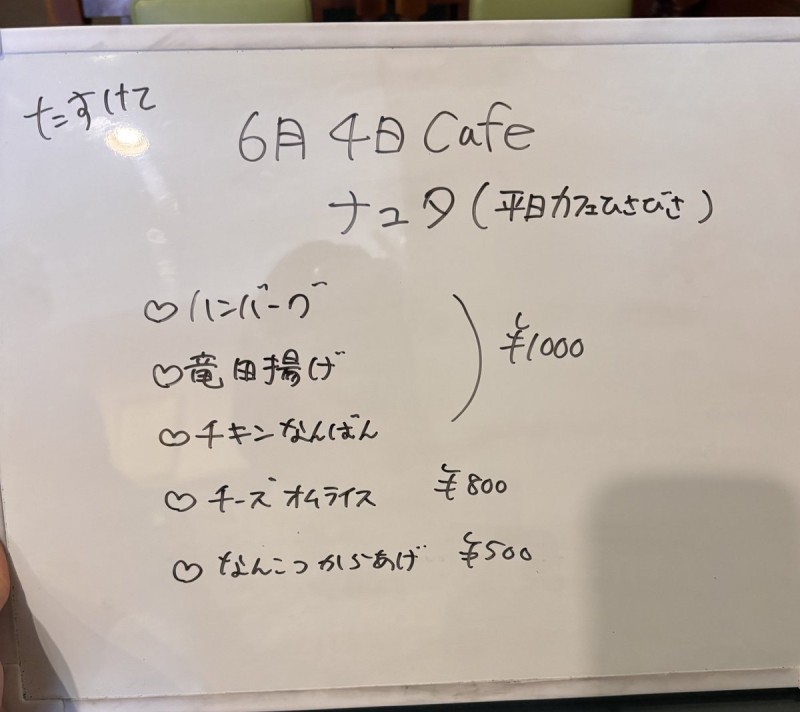 たすけて
6月4日 Cafe
ナユタ(平日カフェひさびさ)
♡ハンバーグ
♡竜田揚げ
♡チキンなんばん
¥1000
♡チーズオムライス ¥800
♡なんこつからあげ ¥500